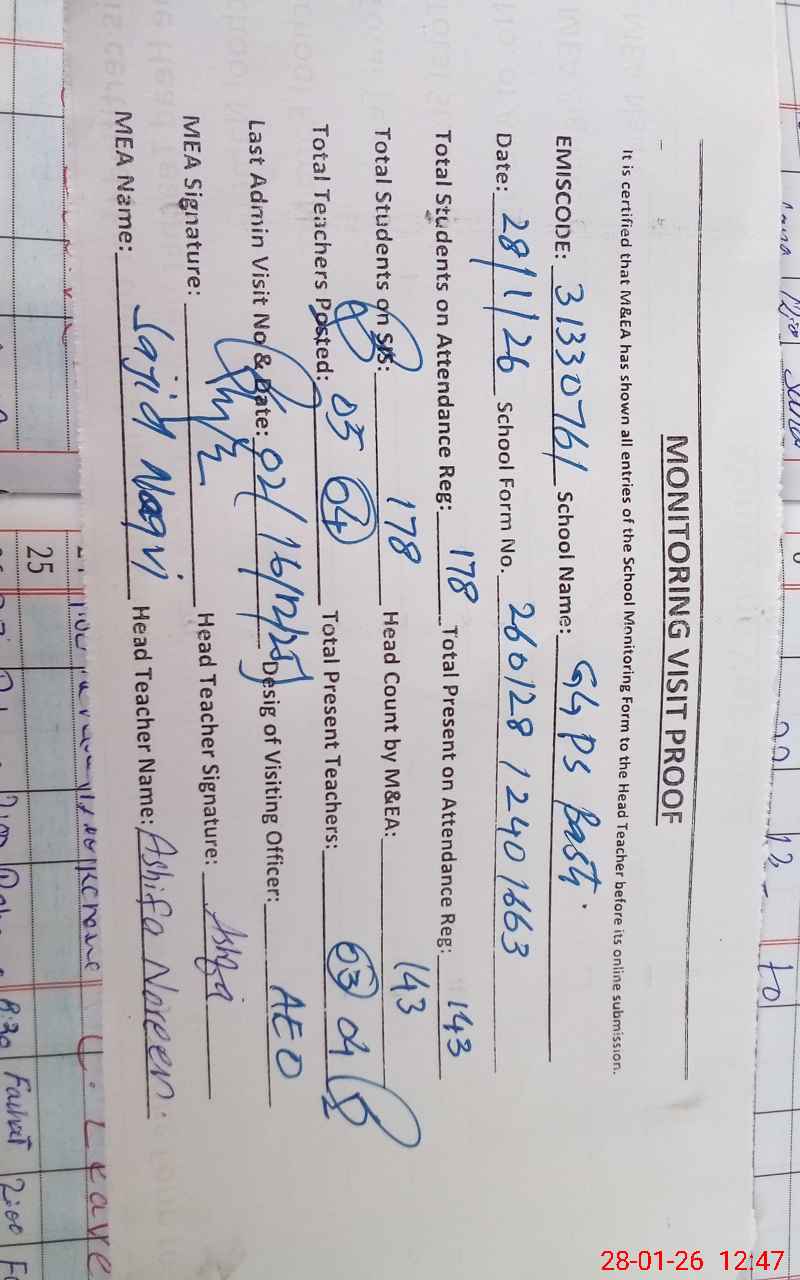 MONITORING VISIT PROOF
It is certified that M&EA has shown all entries of the School Monitoring Form to the Head Teacher before its online submission.
EMISCODE: 31330761 School Name: GGPS Basti.
Date: 28/1/26 School Form No. 260128 12401663
Total Students on Attendance Reg: 178 Total Present on Attendance Reg: 143
Total Students on SIS: 178 Head Count by M&EA: 143
Total Teachers Posted: 05 04 Total Present Teachers: 03 04
Last Admin Visit No & Date: 02/16/12/25 Desig of Visiting Officer: AEO
MEA Signature: Head Teacher Signature: Ashfa
MEA Name: Sajid Naqvi Head Teacher Name: Ashifa Noreen
Leave
25
8:30 Farhat 2:00
28-01-26 12:47